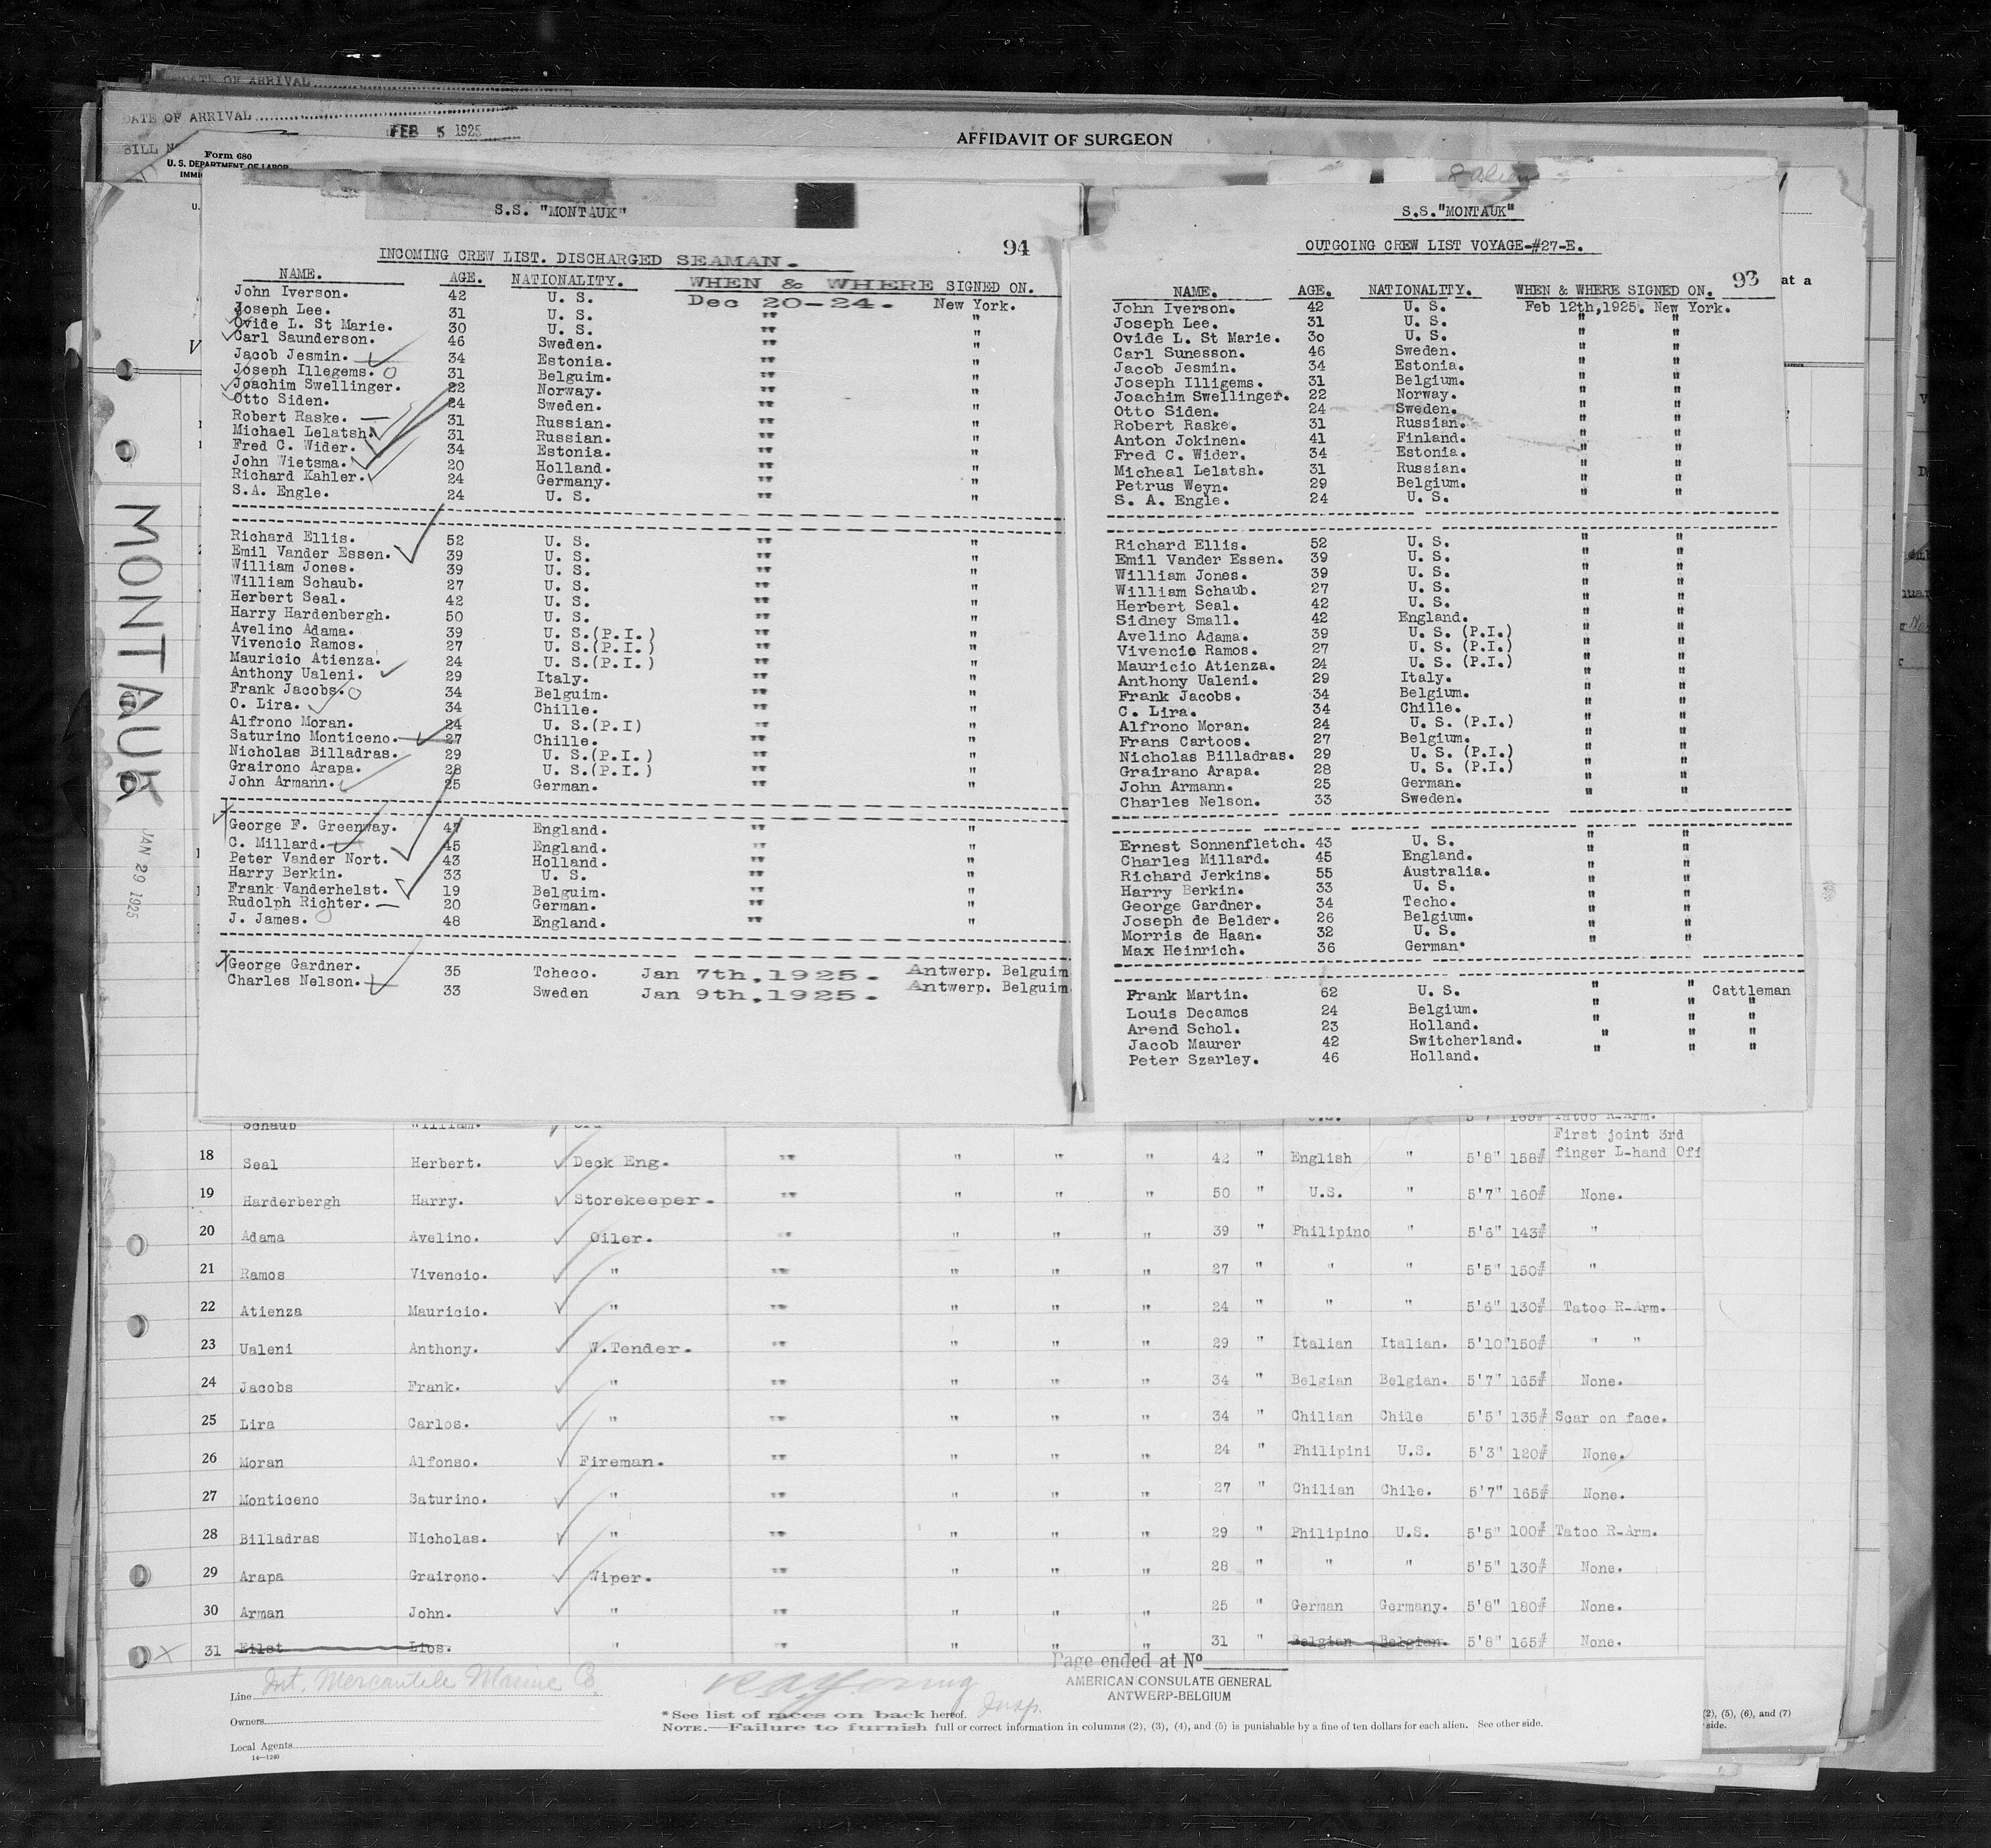 DATE OF ARRIVAL
DATE OF ARRIVAL
FEB 5 1925
AFFIDAVIT OF SURGEON
Form 680
U. S. DEPARTMENT OF LABOR
8 Alien
S.S. "MONTAUK"
94
INCOMING CREW LIST. DISCHARGED SEAMAN.
NAME. AGE. NATIONALITY. WHEN & WHERE SIGNED ON.
John Iverson. 42 U. S. Dec 20-24. New York.
Joseph Lee. 31 U. S. " "
Ovide L. St Marie. 30 U. S. " "
Carl Saunderson. 46 Sweden. " "
Jacob Jesmin. 34 Estonia. " "
Joseph Illegems. 31 Belguim. " "
Joachim Swellinger. 22 Norway. " "
Otto Siden. 24 Sweden. " "
Robert Raske. 31 Russian. " "
Michael Lelatsh. 31 Russian. " "
Fred C. Wider. 34 Estonia. " "
John Wietsma. 20 Holland. " "
Richard Kahler. 24 Germany. " "
S.A. Engle. 24 U. S. " "
Richard Ellis. 52 U. S. " "
Emil Vander Essen. 39 U. S. " "
William Jones. 39 U. S. " "
William Schaub. 27 U. S. " "
Herbert Seal. 42 U. S. " "
Harry Hardenbergh. 50 U. S. " "
Avelino Adama. 39 U. S.(P.I.) " "
Vivencio Ramos. 27 U. S.(P.I.) " "
Mauricio Atienza. 24 U. S.(P.I.) " "
Anthony Ualeni. 29 Italy. " "
Frank Jacobs. 34 Belguim. " "
O. Lira. 34 Chille. " "
Alfrono Moran. 24 U. S.(P.I) " "
Saturino Monticeno. 27 Chille. " "
Nicholas Billadras. 29 U. S.(P.I.) " "
Grairono Arapa. 28 U. S.(P.I.) " "
John Armann. 25 German. " "
George F. Greenway. 47 England. " "
C. Millard. 45 England. " "
Peter Vander Nort. 43 Holland. " "
Harry Berkin. 33 U. S. " "
Frank Vanderhelst. 19 Belguim. " "
Rudolph Richter. 20 German. " "
J. James. 48 England. " "
George Gardner. 35 Tcheco. Jan 7th,1925. Antwerp. Belguim
Charles Nelson. 33 Sweden Jan 9th,1925. Antwerp. Belguim
S.S."MONTAUK"
OUTGOING CREW LIST VOYAGE-#27-E.
93
NAME. AGE. NATIONALITY. WHEN & WHERE SIGNED ON.
John Iverson. 42 U. S. Feb 12th,1925. New York.
Joseph Lee. 31 U. S. " "
Ovide L. St Marie. 30 U. S. " "
Carl Sunesson. 46 Sweden. " "
Jacob Jesmin. 34 Estonia. " "
Joseph Illigems. 31 Belgium. " "
Joachim Swellinger. 22 Norway. " "
Otto Siden. 24 Sweden. " "
Robert Raske. 31 Russian. " "
Anton Jokinen. 41 Finland. " "
Fred C. Wider. 34 Estonia. " "
Micheal Lelatsh. 31 Russian. " "
Petrus Weyn. 29 Belgium. " "
S. A. Engle. 24 U. S. " "
Richard Ellis. 52 U. S. " "
Emil Vander Essen. 39 U. S. " "
William Jones. 39 U. S. " "
William Schaub. 27 U. S. " "
Herbert Seal. 42 U. S. " "
Sidney Small. 42 England. " "
Avelino Adama. 39 U. S. (P.I.) " "
Vivencio Ramos. 27 U. S. (P.I.) " "
Mauricio Atienza. 24 U. S. (P.I.) " "
Anthony Ualeni. 29 Italy. " "
Frank Jacobs. 34 Belgium. " "
C. Lira. 34 Chille. " "
Alfrono Moran. 24 U. S. (P.I.) " "
Frans Cartoos. 27 Belgium. " "
Nicholas Billadras. 29 U. S. (P.I.) " "
Grairano Arapa. 28 U. S. (P.I.) " "
John Armann. 25 German. " "
Charles Nelson. 33 Sweden. " "
Ernest Sonnenfletch. 43 U. S. " "
Charles Millard. 45 England. " "
Richard Jerkins. 55 Australia. " "
Harry Berkin. 33 U. S. " "
George Gardner. 34 Techo. " "
Joseph de Belder. 26 Belgium. " "
Morris de Haan. 32 U. S. " "
Max Heinrich. 36 German. " "
Frank Martin. 62 U. S. " " Cattleman
Louis Decamcs 24 Belgium. " " "
Arend Schol. 23 Holland. " " "
Jacob Maurer 42 Switcherland. " " "
Peter Szarley. 46 Holland. " " "
at a
MONTAUK
JAN 29 1925
Schaub William. Tatoo R-Arm.
18 Seal Herbert. Deck Eng. " " " " 42 " English " 5'8" 158# First joint 3rd finger L-hand Off
19 Harderbergh Harry. Storekeeper. " " " " 50 " U.S. " 5'7" 160# None.
20 Adama Avelino. Oiler. " " " " 39 " Philipino " 5'6" 143# "
21 Ramos Vivencio. " " " " " 27 " " " 5'5" 150# "
22 Atienza Mauricio. " " " " " 24 " " " 5'6" 130# Tatoo R-Arm.
23 Ualeni Anthony. W.Tender. " " " " 29 " Italian Italian. 5'10" 150# " "
24 Jacobs Frank. " " " " " 34 " Belgian Belgian. 5'7" 165# None.
25 Lira Carlos. " " " " " 34 " Chilian Chile 5'5" 135# Scar on face.
26 Moran Alfonso. Fireman. " " " " 24 " Philipini U.S. 5'3" 120# None.
27 Monticeno Saturino. " " " " " 27 " Chilian Chile. 5'7" 165# None.
28 Billadras Nicholas. " " " " " 29 " Philipino U.S. 5'5" 100# Tatoo R-Arm.
29 Arapa Grairono. Wiper. " " " " 28 " " " 5'5" 130# None.
30 Arman John. " " " " " 25 " German Germany. 5'8" 180# None.
31 Eilet Lios. " " " " " 31 " Belgian Belgian. 5'8" 165# None.
Page ended at No
AMERICAN CONSULATE GENERAL
ANTWERP-BELGIUM
Line Int. Mercantile Marine Co.
Owners
Local Agents
14-1240
Insp.
*See list of races on back hereof.
NOTE.—Failure to furnish full or correct information in columns (2), (3), (4), and (5) is punishable by a fine of ten dollars for each alien. See other side.
(2), (5), (6), and (7)
side.